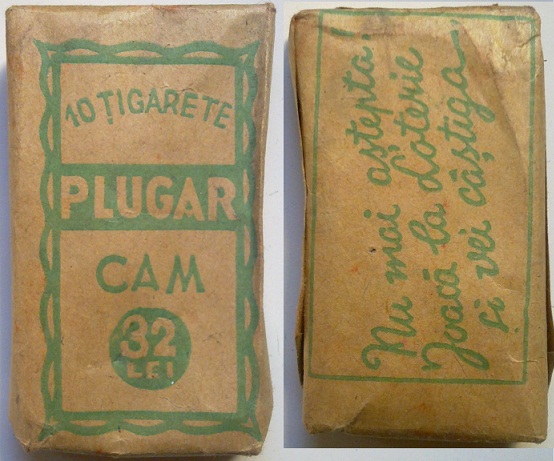 10 ȚIGARETE
PLUGAR
CAM
32
LEI
Nu mai aștepta!
Joacă la Loterie
și vei câștiga